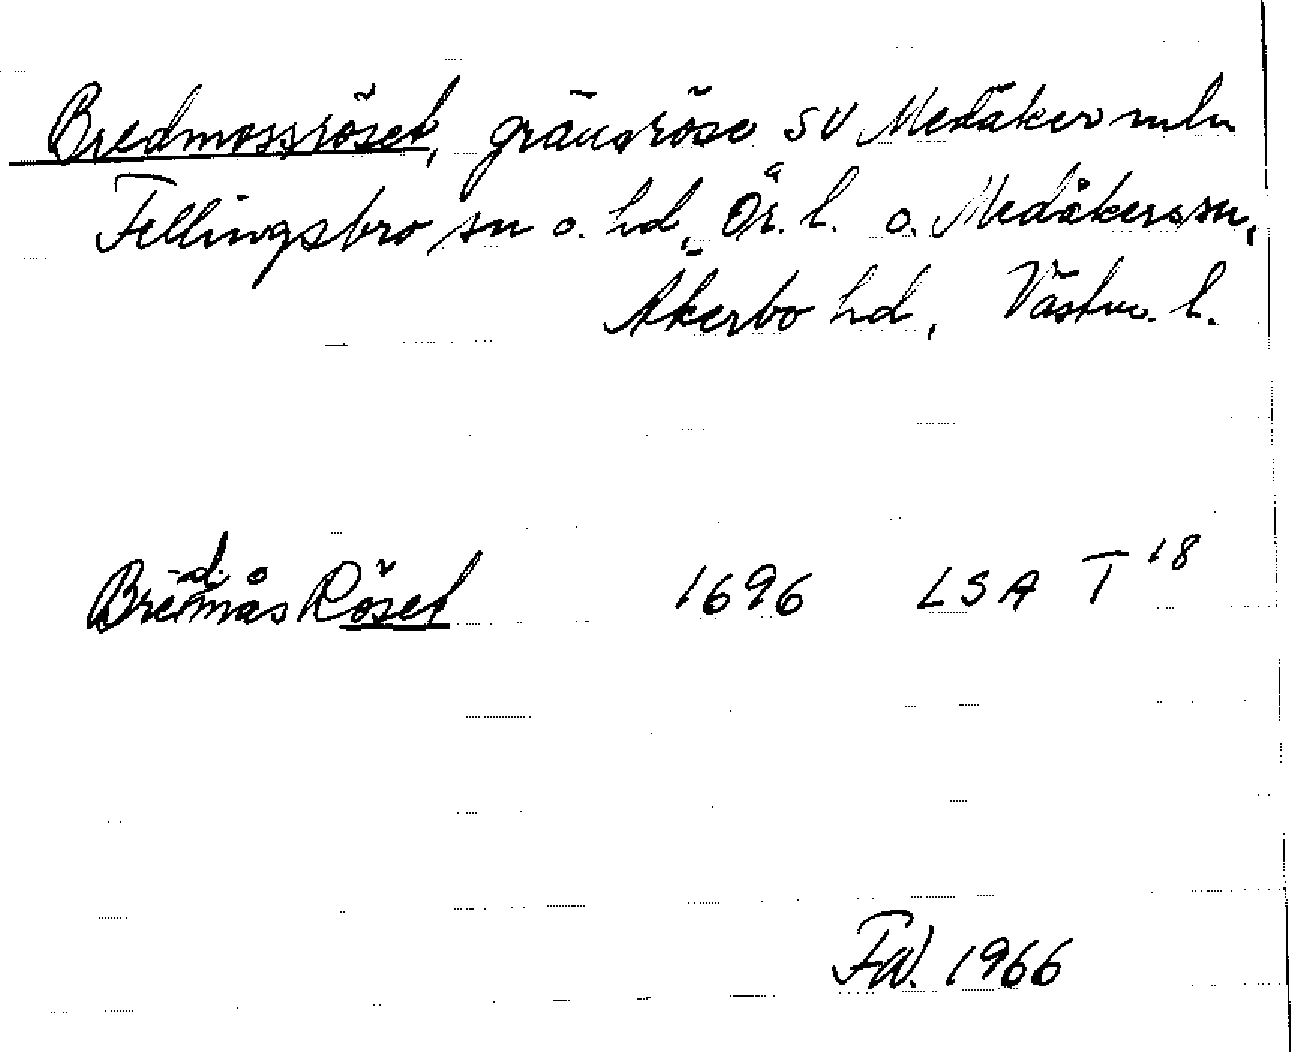 Bredmossröset, gränsröse SV Medåker mln
Fellingsbro sn o. hd, Ör. l. o. Medåkers sn,
Åkerbo hd, Västm. l.
Bredmås Röset 1696 LSA T 18
1966